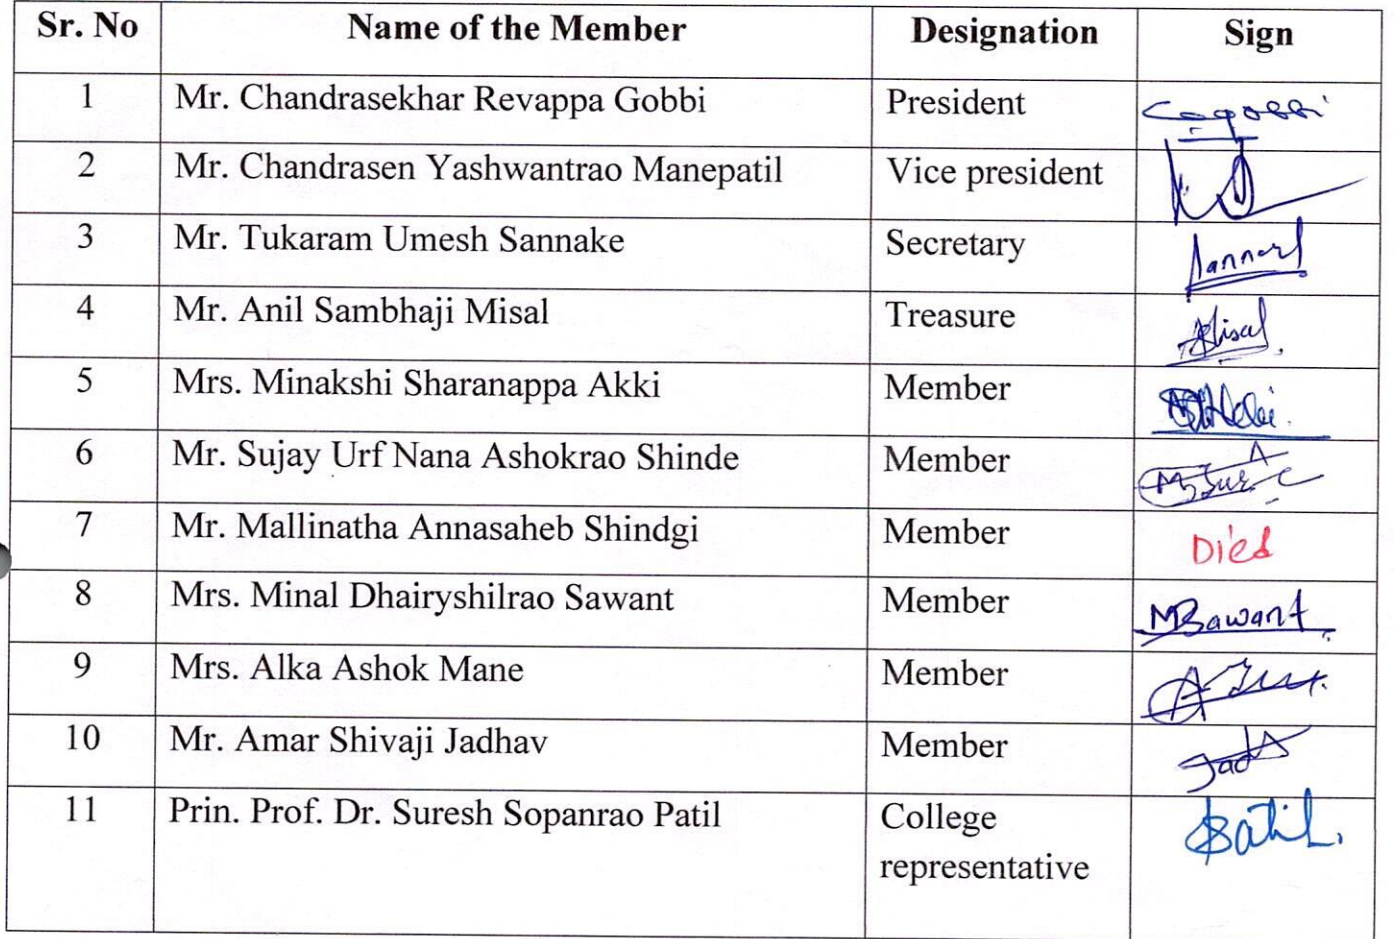 Sr. No Name of the Member Designation Sign
1 Mr. Chandrasekhar Revappa Gobbi President
2 Mr. Chandrasen Yashwantrao Manepatil Vice president
3 Mr. Tukaram Umesh Sannake Secretary
4 Mr. Anil Sambhaji Misal Treasure
5 Mrs. Minakshi Sharanappa Akki Member
6 Mr. Sujay Urf Nana Ashokrao Shinde Member
7 Mr. Mallinatha Annasaheb Shindgi Member Died
8 Mrs. Minal Dhairyshilrao Sawant Member MBSawant
9 Mrs. Alka Ashok Mane Member
10 Mr. Amar Shivaji Jadhav Member
11 Prin. Prof. Dr. Suresh Sopanrao Patil College
representative